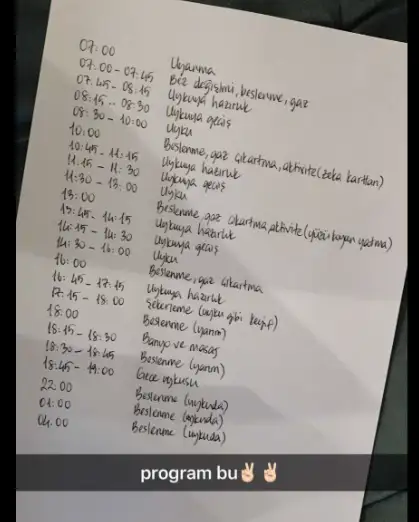 07:00 Uyanma
07.00-07:45 Bez değişimi, beslenme, gaz
07.45-08:15 Uykuya hazırlık
08:15-08:30 Uykuya geçiş
08:30-10:00 Uyku
10:00 Beslenme, gaz çıkartma, aktivite (zeka kartları)
10:45-11:15 Uykuya hazırlık
11.15-11:30 Uykuya geçiş
11:30-13:00 Uyku
13:00 Beslenme, gaz çıkartma, aktivite (yüzü koyun yatma)
13:45-14:15 Uykuya hazırlık
14:15-14:30 Uykuya geçiş
14:30-16:00 Uyku
16:00 Beslenme, gaz çıkartma
16:45-17:15 Uykuya hazırlık
17:15-18:00 Şekerleme (uyku gibi keyif)
18:00 Beslenme (yarım)
18:15-18:30 Banyo ve masaj
18:30-18:45 Beslenme (yarım)
18:45-19:00 Gece uykusu
22.00 Beslenme (uykuda)
01:00 Beslenme (uykuda)
04.00 Beslenme (uykuda)
program bu✌🏻 ✌🏻